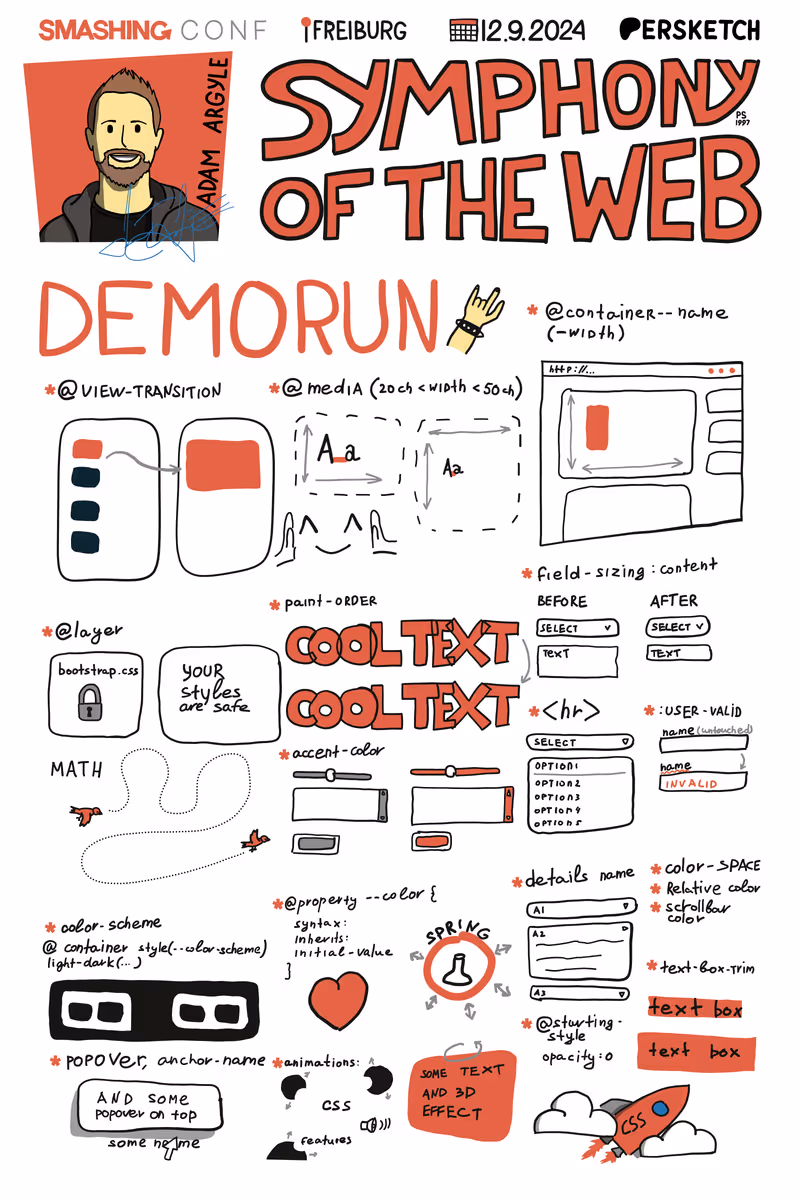 SMASHING CONF
FREIBURG
12.9.2024
PERSKETCH
ADAM ARGYLE
SYMPHONY
OF THE WEB
PS
1997
DEMORUN
* @container--name
(-WIDTH)
http://...
* @ VIEW-TRANSITION
* @ mediA (20ch < WIDTH < 50ch)
Aa
Aa
* field-sizing : content
BEFORE
AFTER
SELECT
SELECT
TEXT
TEXT
* @layer
bootstrap.css
YOUR
styles
are safe
* paint-ORDER
COOL TEXT
COOL TEXT
* <hr>
SELECT
OPTION1
OPTION2
OPTION3
OPTION4
OPTION5
* :USER-VALID
name (untouched)
name
INVALID
MATH
* accent-color
* details name
A1
A2
A3
* color-SPACE
* Relative color
* scrollbar
color
* color-scheme
@ container style(--color-scheme)
light-dark(...)
* @property --color {
syntax:
inherits:
initial-value
}
SPRING
* text-box-TRIM
text box
text box
* @starting-
style
opacity:0
* POPOVER, anchor-name
AND SOME
popover on top
some name
* animations:
CSS
features
SOME TEXT
AND 3D
EFFECT
CSS